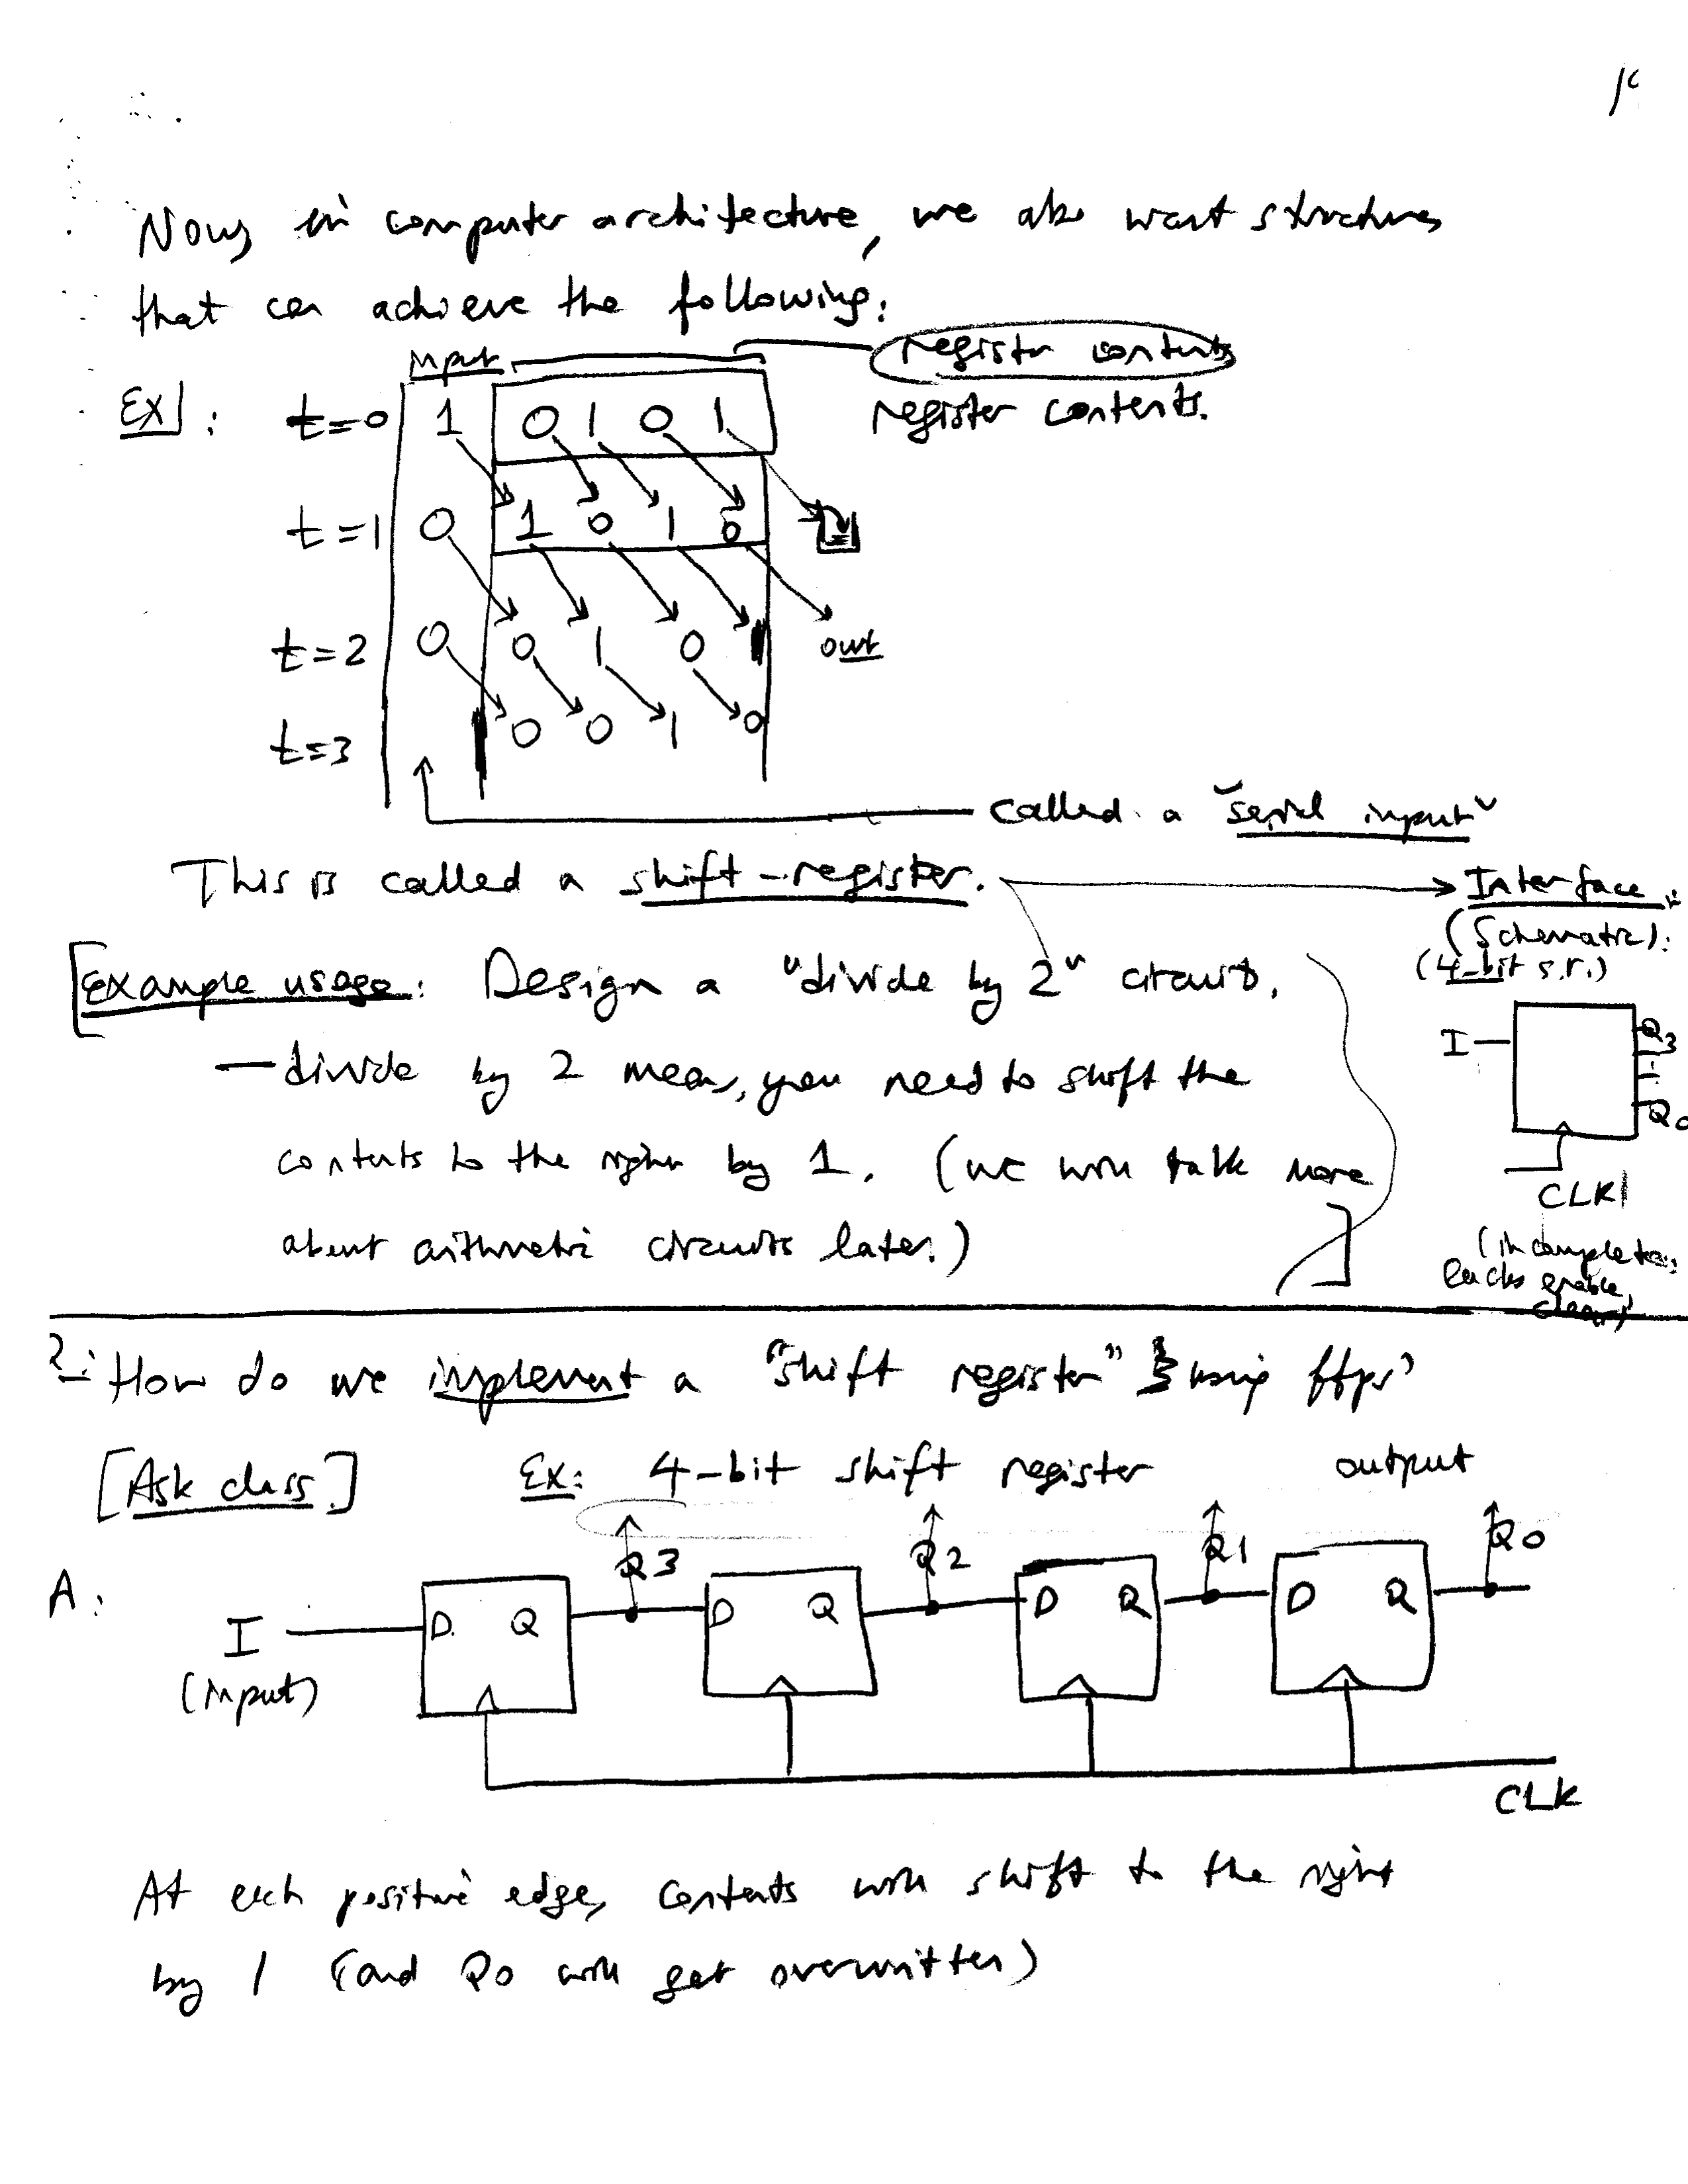 Now, in computer architecture, we also want structures
that can achieve the following:
Input
register contents
Ex: t=0 1 0 1 0 1
register contents.
t=1 0 1 0 1 0
t=2 0 0 1 0 1 out
t=3 0 0 1 0
called a "serial input"
This is called a shift-register.
Interface:
(Schematic):
(4-bit s.r.)
[Example usage: Design a "divide by 2" circuit.
I Q3
Q0
CLK
(incomplete:
lacks enable,
clear)
— divide by 2 means, you need to shift the
contents to the right by 1. (we will talk more
about arithmetic circuits later.) ]
Q: How do we implement a "shift register" using ffps?
[Ask class.] Ex: 4-bit shift register output
Q3 Q2 Q1 Q0
A:
I D Q D Q D Q D Q
(input)
CLK
At each positive edge, contents will shift to the right
by 1 (and Q0 will get overwritten)